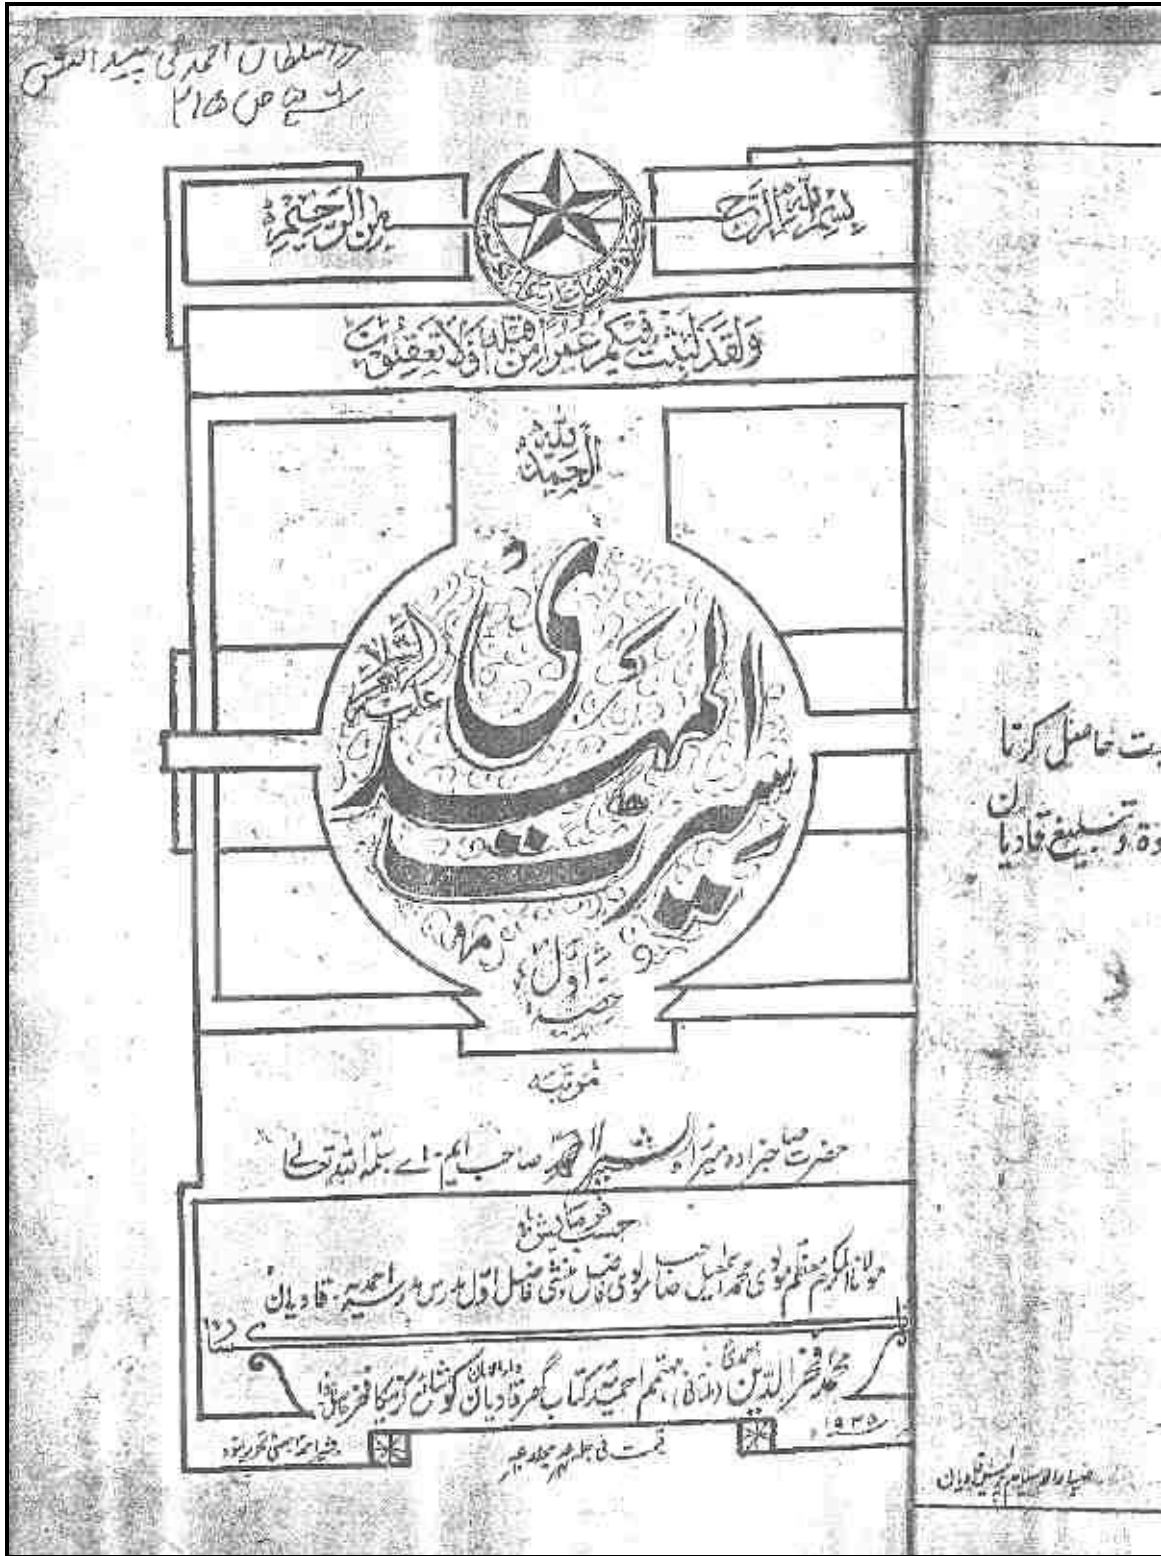 مرزا سلطان احمد کی پیدائش
ص ۲۱۵
بسم اللہ الرحمٰن الرحیم
وَلَقَدْ لَبِثْتُ فِيكُمْ عُمُرًا مِنْ قَبْلِهِ أَفَلَا تَعْقِلُونَ
الحمد للہ
سیرت المہدی
علیہ السلام
حصہ اول
مرتبہ
حضرت صاحبزادہ میرزا بشیر احمد صاحب ایم۔ اے سلمہ اللہ تعالےٰ
حسب فرمایش
مولانا المکرم معظم مولوی محمد اسمٰعیل صاحب مولوی فاضل منشی فاضل اول مدرس مدرسہ احمدیہ۔ قادیان
محمد فخر الدین احمدی (ملتانی) مہتمم احمدیہ کتاب گھر قادیان دارالامان کو شائع کرنیکا فخر حاصل ہوا
۱۹۳۵
قیمت فی جلد
حاصل کرتا
و تبلیغ قادیان
ضیاء الاسلام پریس قادیان